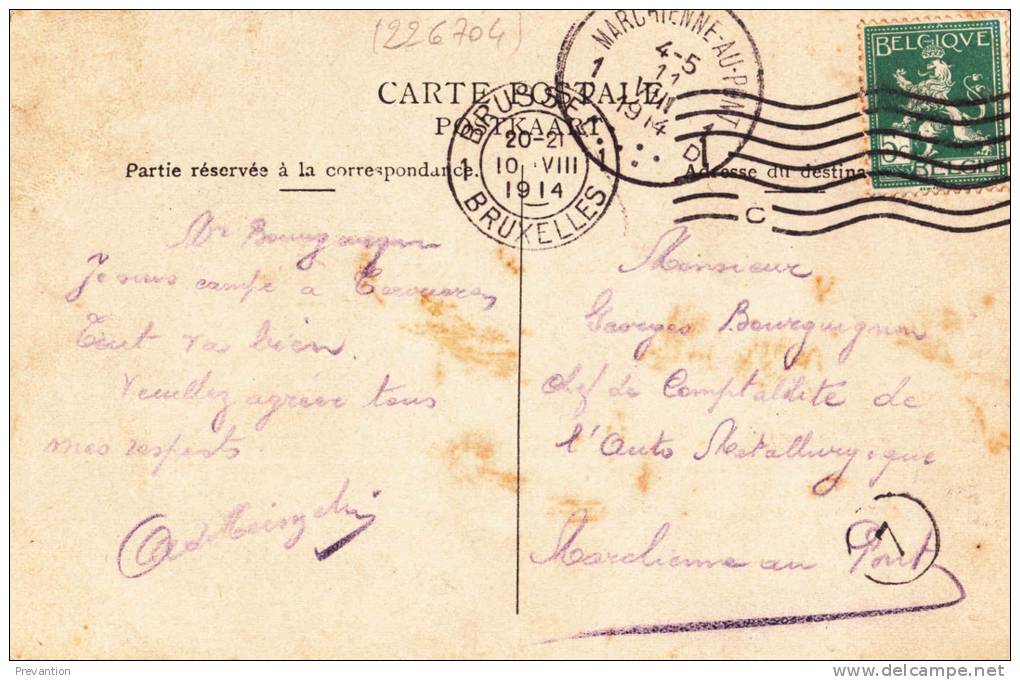 (226704)
MARCHIENNE-AU-PONT
4-5
11
VIII
1914
1 1
D
BELGIQVE
5c
BELGIE
CARTE POSTALE
POSTKAART
BRUSSEL
20-21
1 10 VIII 1
1914
BRUXELLES
C
Partie réservée à la correspondance.
Adresse du destina
Mr Bourguignon
Je suis campé à Tervueren
Tout va bien
Veuillez agréer tous
mes respects
Monsieur
Georges Bourguignon
chef de Comptabilité de
l'Auto Metallurgique
Marchienne au Pont
V
Prevantion
www.delcampe.net